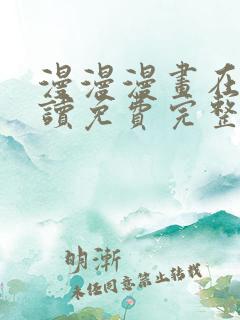 漫漫漫畫在
讀免費完整
明漸
未任同意禁止轉載